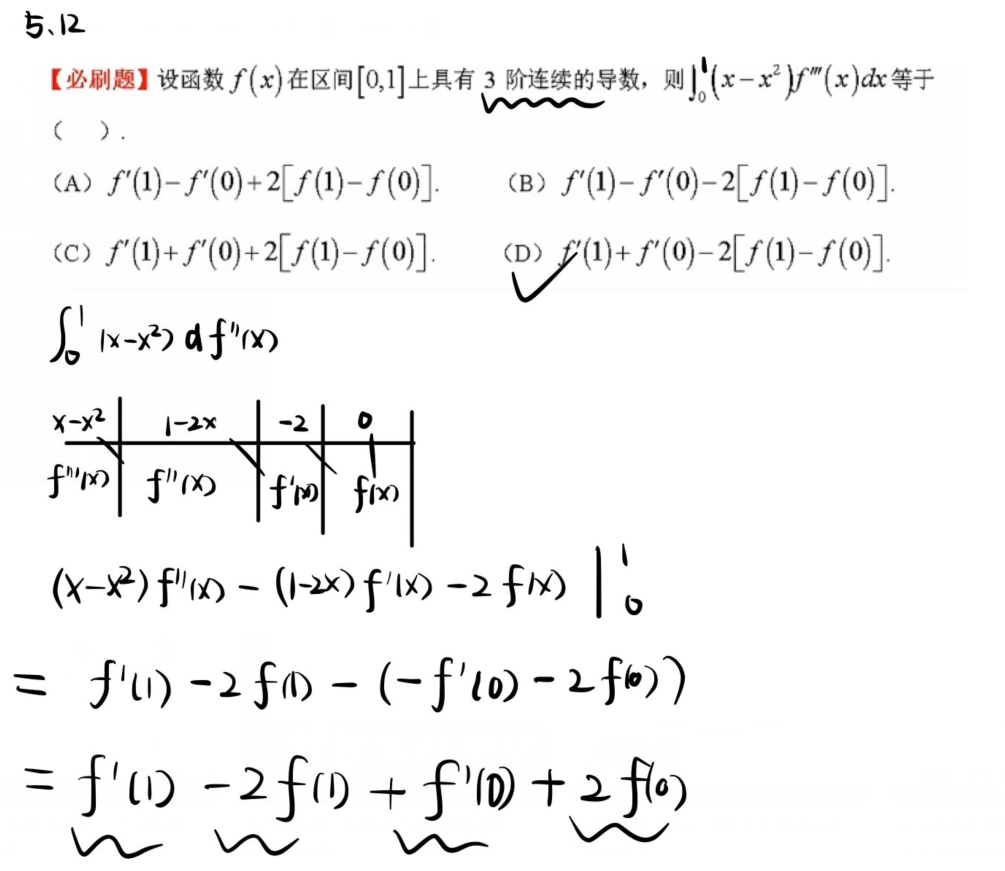 5.12
【必刷题】设函数 f(x) 在区间[0,1]上具有 3 阶连续的导数，则∫₀¹(x−x²)f‴(x)dx 等于
（ ）.
（A）f′(1)−f′(0)+2[f(1)−f(0)]. （B）f′(1)−f′(0)−2[f(1)−f(0)].
（C）f′(1)+f′(0)+2[f(1)−f(0)]. （D）f′(1)+f′(0)−2[f(1)−f(0)].
∫₀¹ (x−x²) d f″(x)
x−x² | 1−2x | −2 | 0
f‴(x) | f″(x) | f′(x) | f(x)
(x−x²) f″(x) − (1−2x) f′(x) − 2 f(x) |₀¹
= f′(1) − 2 f(1) − (−f′(0) − 2 f(0))
= f′(1) − 2 f(1) + f′(0) + 2 f(0)